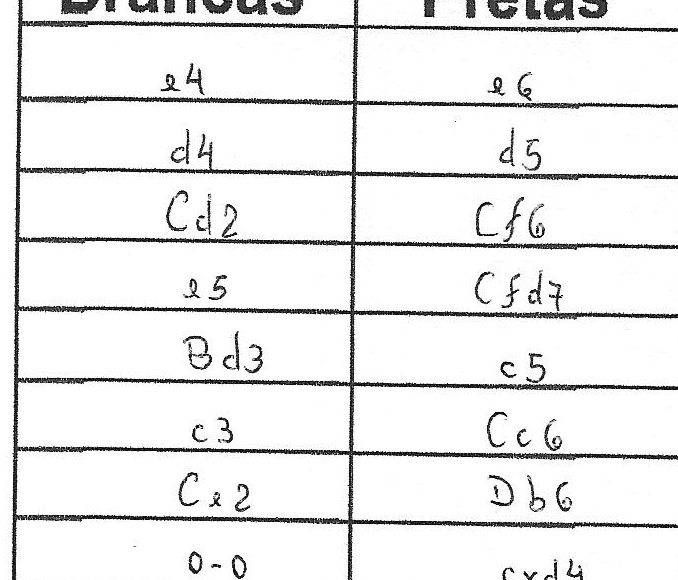 Brancas Pretas
e4 e6
d4 d5
Cd2 Cf6
e5 Cfd7
Bd3 c5
c3 Cc6
Ce2 Db6
0-0 cxd4